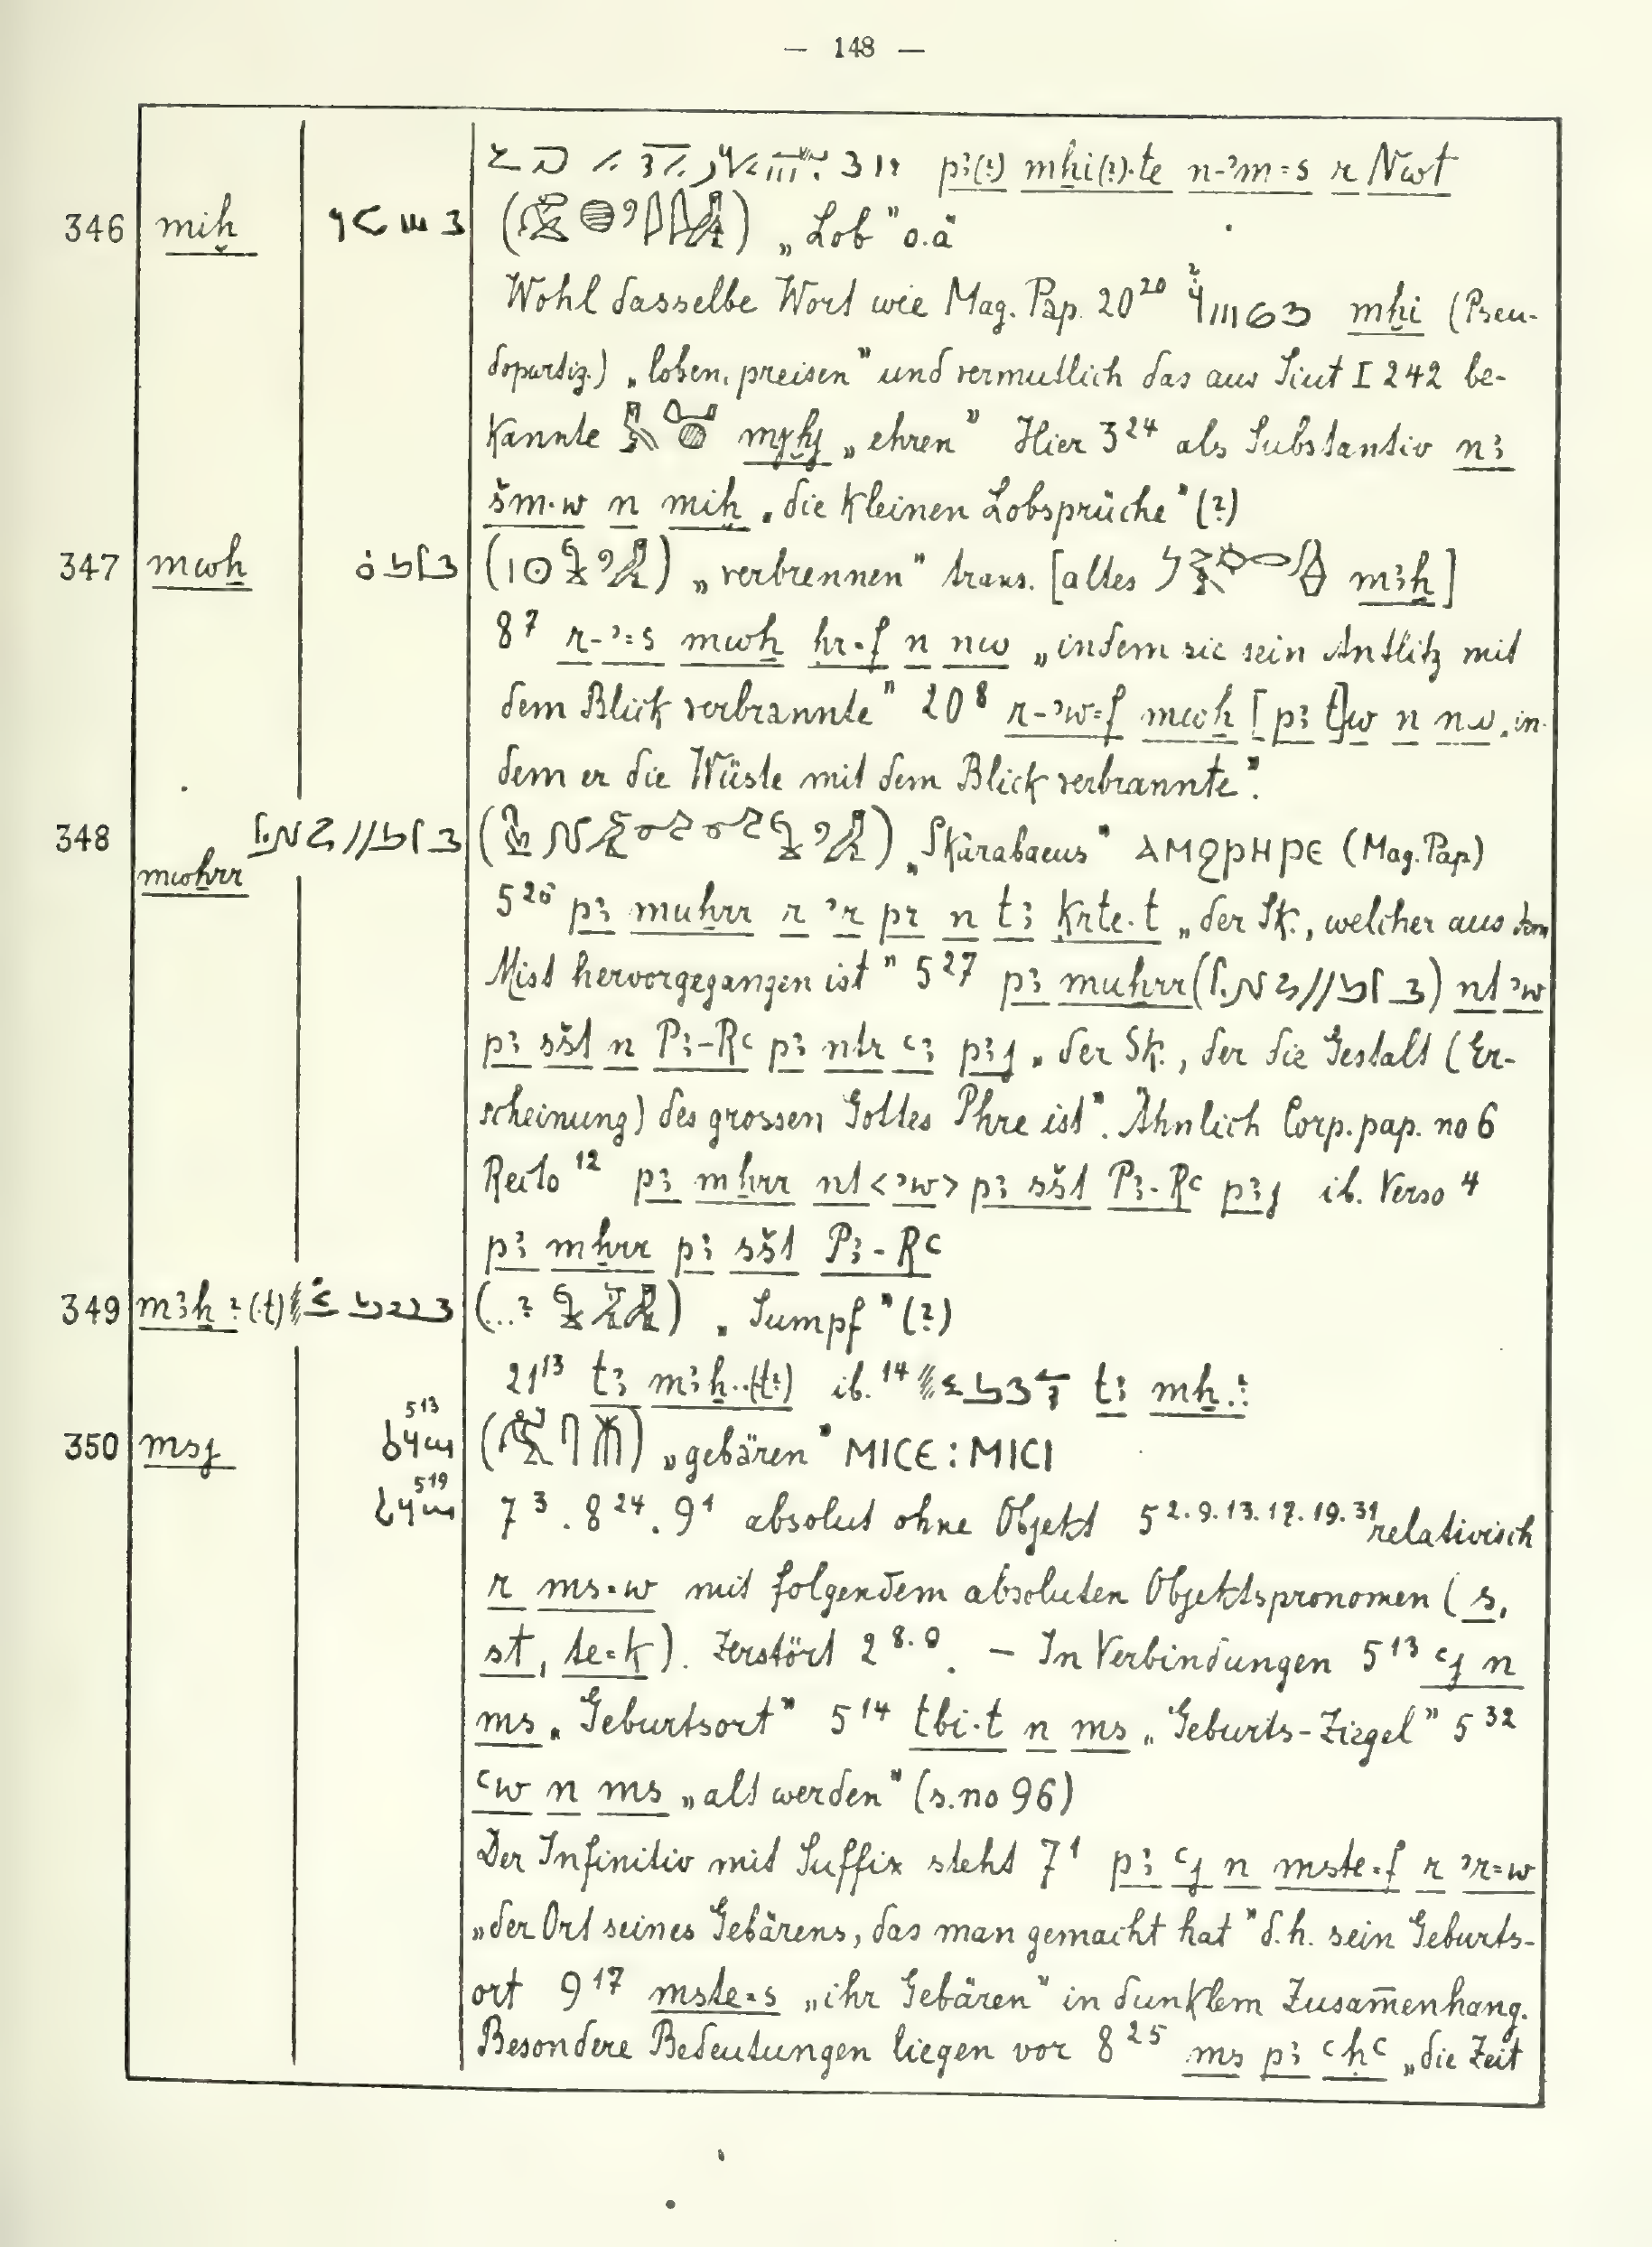 — 148 —
pꜣ(?) mḫi(?)·te n-ꜣm=s r Nwt
346 miḫ „Lob" o.ä
Wohl dasselbe Wort wie Mag. Pap. 20²⁰ mḫi (Pseu-
dopartiz.) „loben, preisen" und vermutlich das aus Siut I 242 be-
kannte mḫj „ehren" Hier 3²⁴ als Substantiv nꜣ
šm·w n miḫ „die kleinen Lobsprüche" (?)
347 mwḥ „verbrennen" trans. [altes mꜣḫ]
8⁷ r-ꜣ=s mwḥ ḥr=f n nw „indem sie sein Antlitz mit
dem Blick verbrannte" 20⁸ r-ꜣw=f mwḥ [pꜣ t]w n nw „in-
dem er die Wüste mit dem Blick verbrannte".
348 mwḥrr „Skarabaeus" ⲁⲙϩⲣⲏⲣⲉ (Mag. Pap)
5²⁶ pꜣ muḥrr r ꜣr pr n tꜣ krte·t „der Sk., welcher aus dem
Mist hervorgegangen ist" 5²⁷ pꜣ muḥrr nt ꜣw
pꜣ sšt n Pꜣ-Rꜥ pꜣ ntr ꜥꜣ pꜣj „der Sk., der die Gestalt (Er-
scheinung) des grossen Gottes Phre ist". Ähnlich Corp. pap. no 6
Recto ¹² pꜣ mḥrr nt <ꜣw> pꜣ sšt Pꜣ-Rꜥ pꜣj ib. Verso ⁴
pꜣ mḥrr pꜣ sšt Pꜣ-Rꜥ
349 mꜣḫ ?(·t) (...? ) „Sumpf" (?)
21¹³ tꜣ mꜣḫ..(t?) ib. ¹⁴ tꜣ mḫ.:
350 msj 5¹³ „gebären" ⲙⲓⲥⲉ : ⲙⲓⲥⲓ
5¹⁹ 7³. 8²⁴. 9¹ absolut ohne Objekt 5²·⁹·¹³·¹⁷·¹⁹·³¹ relativisch
r ms=w mit folgendem absoluten Objektspronomen (s,
st, te=k). Zerstört 2⁸·⁹. — In Verbindungen 5¹³ ꜥj n
ms „Geburtsort" 5¹⁴ tbi·t n ms „Geburts-Ziegel" 5³²
ꜥw n ms „alt werden" (s. no 96)
Der Infinitiv mit Suffix steht 7¹ pꜣ ꜥj n mste=f r ꜣr=w
„der Ort seines Gebärens, das man gemacht hat" d.h. sein Geburts-
ort 9¹⁷ mste=s „ihr Gebären" in dunklem Zusam̄enhang.
Besondere Bedeutungen liegen vor 8²⁵ ms pꜣ ꜥḥꜥ „die Zeit